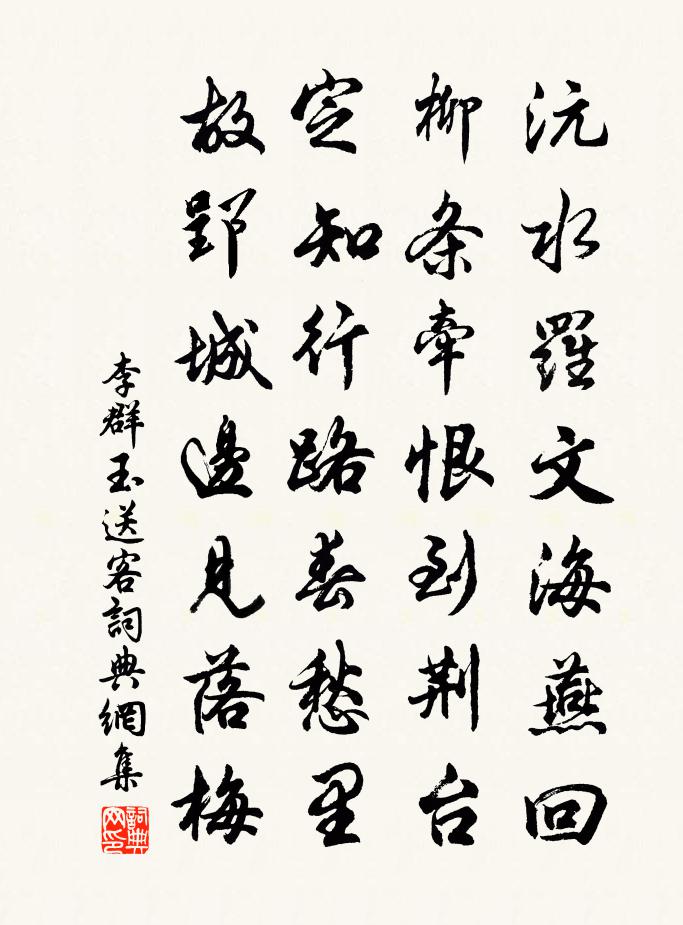 沅水羅文海燕回
柳条牽恨到荆台
定知行路春愁里
故郢城邊見落梅
李群玉送客詞典網集
詞典网印